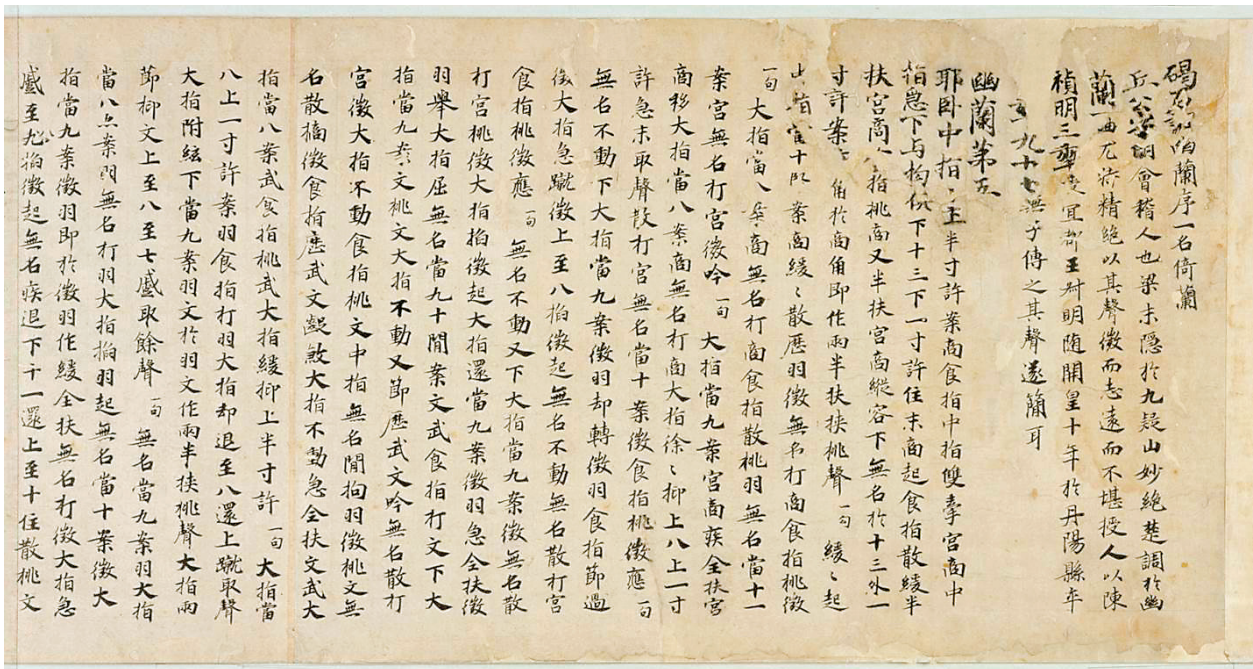 碣石調幽蘭序一名倚蘭
丘公字明會稽人也梁末隱於九疑山妙絕楚調於幽
蘭一曲尤特精絕以其聲微而志遠而不堪授人以陳
禎明三年授宜都王叔明隨開皇十年於丹陽縣卒
年九十七無子傳之其聲遂簡耳
幽蘭第五
耶臥中指半寸許案商食指中指雙牽宮商中
指急下与拘俱下十三下一寸許住末商起食指散緩半
扶宮商食指挑商又半扶宮商縱容下無名於十三外一
寸許案角於商角即作兩半扶挾挑聲 一句 緩〻起
指當十案商緩〻散歷羽徵無名打商食指挑徵
一句 大指當八案商無名打商食指散挑羽無名當十一
案宮無名打宮徵吟 一句 大指當九案宮商疾全扶宮
商移大指當八案商無名打商大指徐〻抑上八上一寸
許急末取聲散打宮無名當十案徵食指挑徵應 一句
無名不動下大指當九案徵羽却轉徵羽食指節過
徵大指急蹴徵上至八掐徵起無名不動無名散打宮
食指挑徵應 一句 無名不動又下大指當九案徵無名散
打宮挑徵大指掐徵起大指還當九案徵羽急全扶徵
羽舉大指屈無名當九十間案文武食指打文下大
指當九案文挑文大指不動又節歷武文吟無名散打
宮徵大指不動食指挑文中指無名間拘羽徵挑文無
名散摘徵食指歷武文齪敦大指不動急全扶文武大
指當八案武食指挑武大指緩抑上半寸許 一句 大指當
八上一寸許案羽食指打羽大指却退至八還上蹴取聲
大指附絃下當九案羽文於羽文作兩半扶挾挑聲大指兩
節抑文上至八至七蹙取餘聲 一句 無名當九案羽大指
當八案羽無名打羽大指掐羽起無名當十案徵大
指當九案徵羽即於徵羽作緩全扶無名打徵大指急
蹙至八掐徵起無名疾退下十一還上至十住散挑文